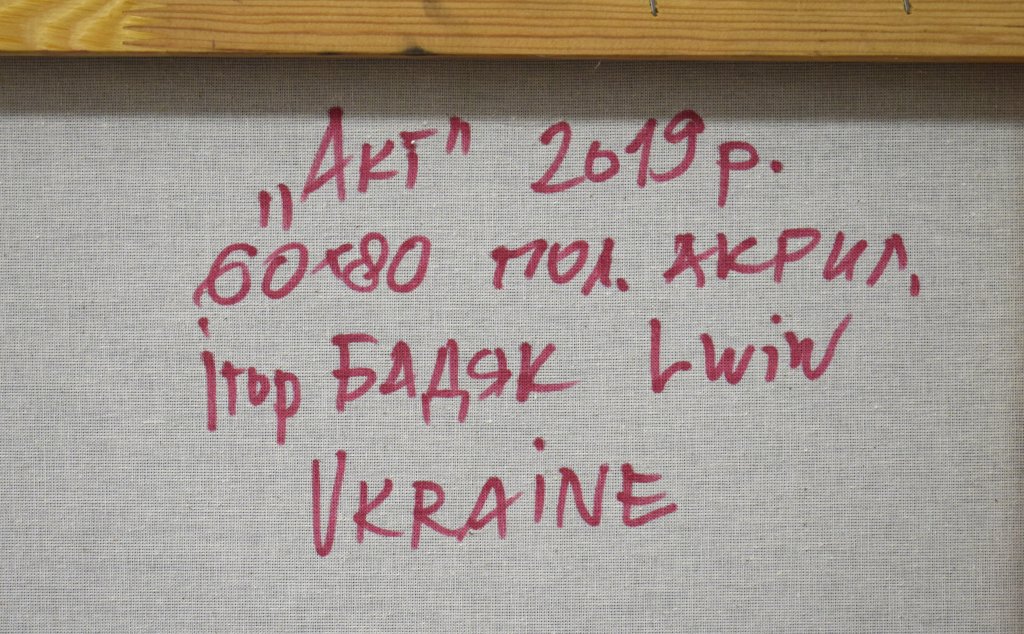 „Акт" 2019 р.
60×80 пол. акрил.
Ігор Бадяк Lwiw
UKRAiNE